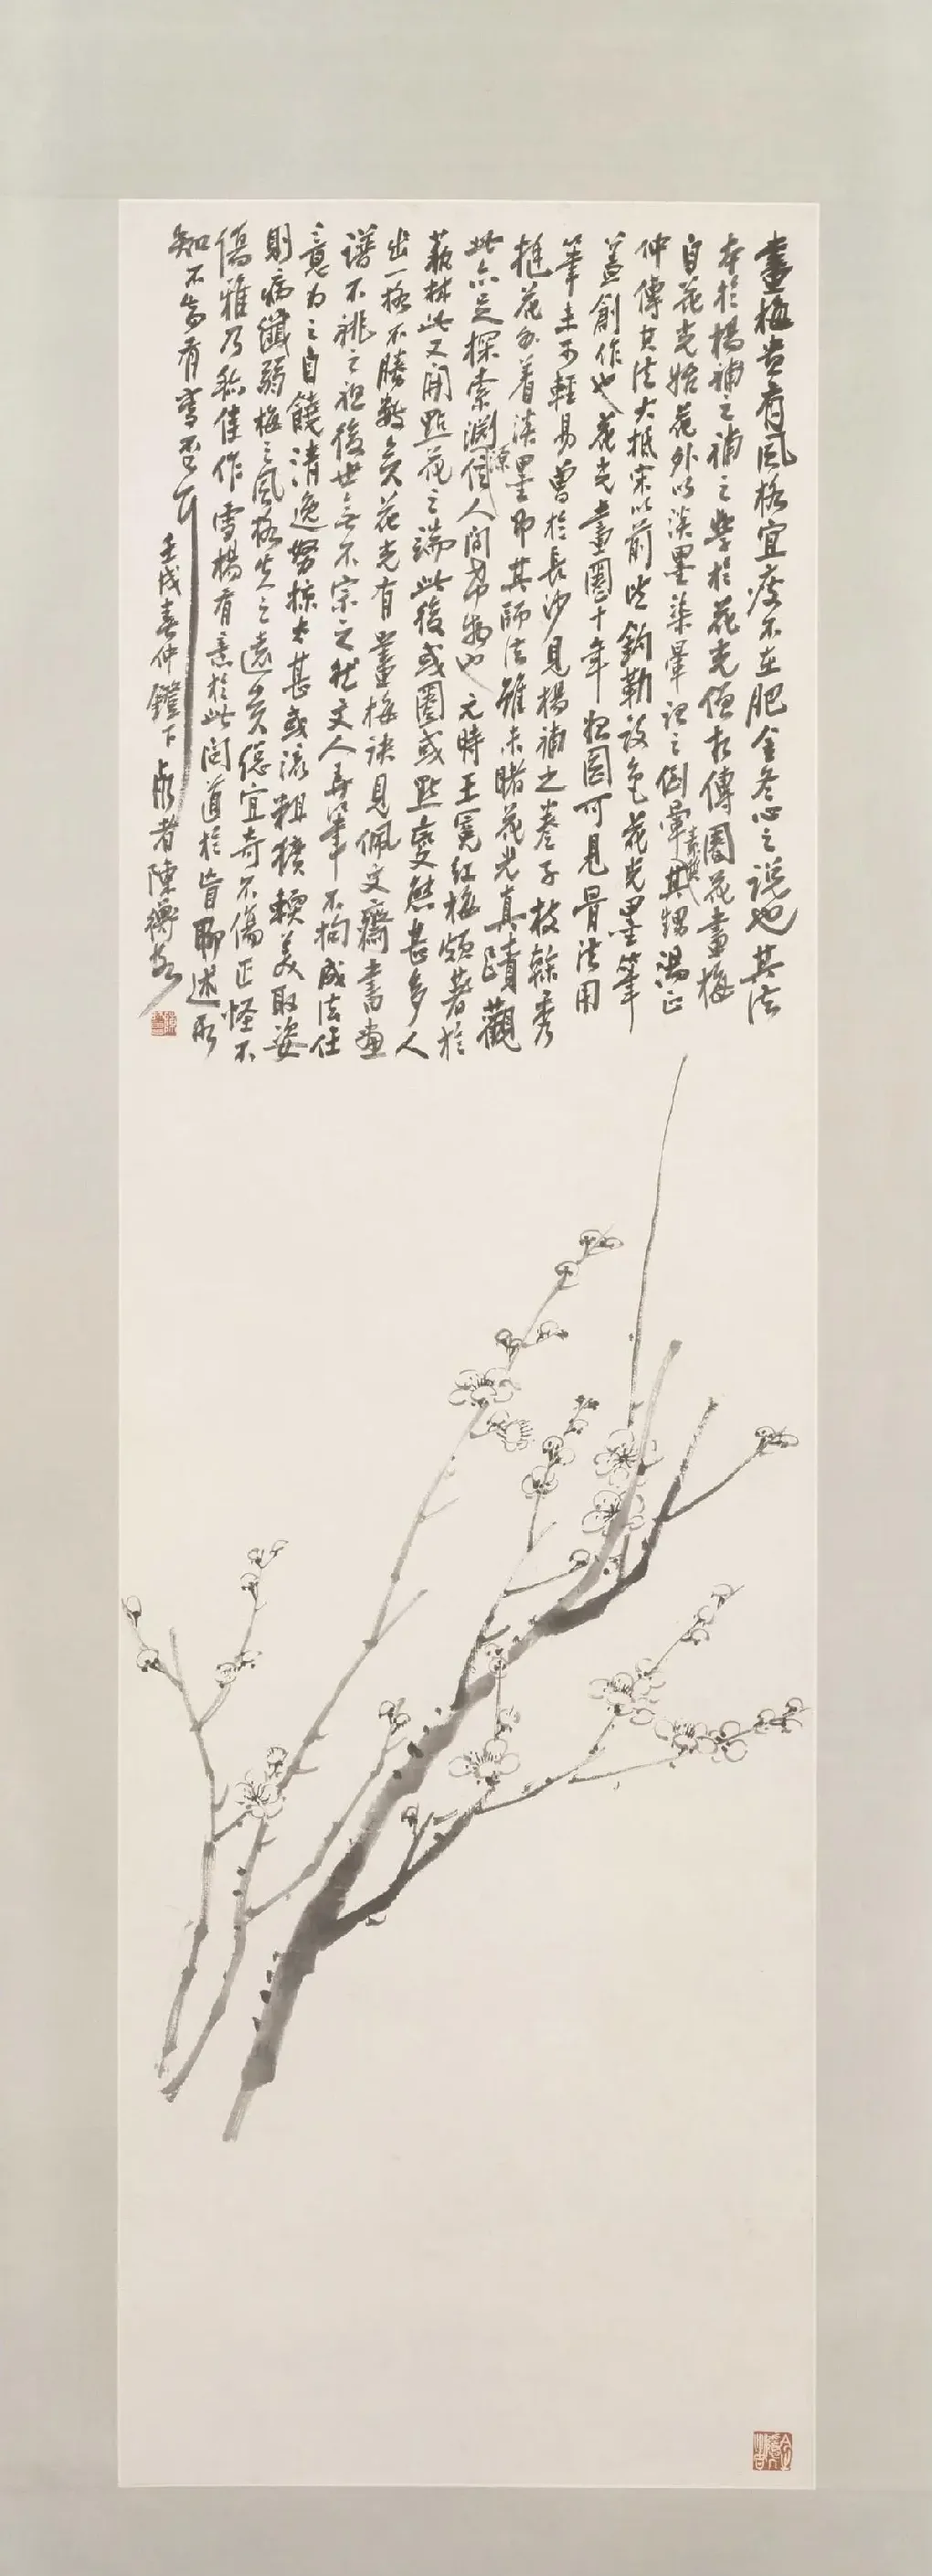 畫梅貴有風格宜瘦不在肥金冬心之說也其法
本於楊補之補之學於花光僧相傳圈花畫梅
自花光始花外以淡墨染暈謂之倒暈其甥湯正
仲傳其法大抵宋以前皆鉤勒設色花光墨筆
蓋創作也花光畫圈十年獨圈可見骨法用
筆之不輕易曾於長沙見楊補之卷子枝榦秀
挺花外着淡墨即其師法雖未睹花光真蹟觀
此亦足探索淵源人間希物也元時王冕紅梅頗著於
藝林此又開點花之端此後或圈或點變態甚多人
出一格不勝數矣花光有畫梅訣見佩文齋書畫
譜不祧之祖後世無不宗之然文人弄筆不拘成法任
意為之自饒清逸努掠太甚或流粗獷輭美取姿
則病纖弱梅之風格失之遠矣總宜奇不傷正怪不
傷雅乃稱佳作雪楊有意於此問道於盲聊述所
知不知有當否
壬戌春仲鐙下 者陳衡恪